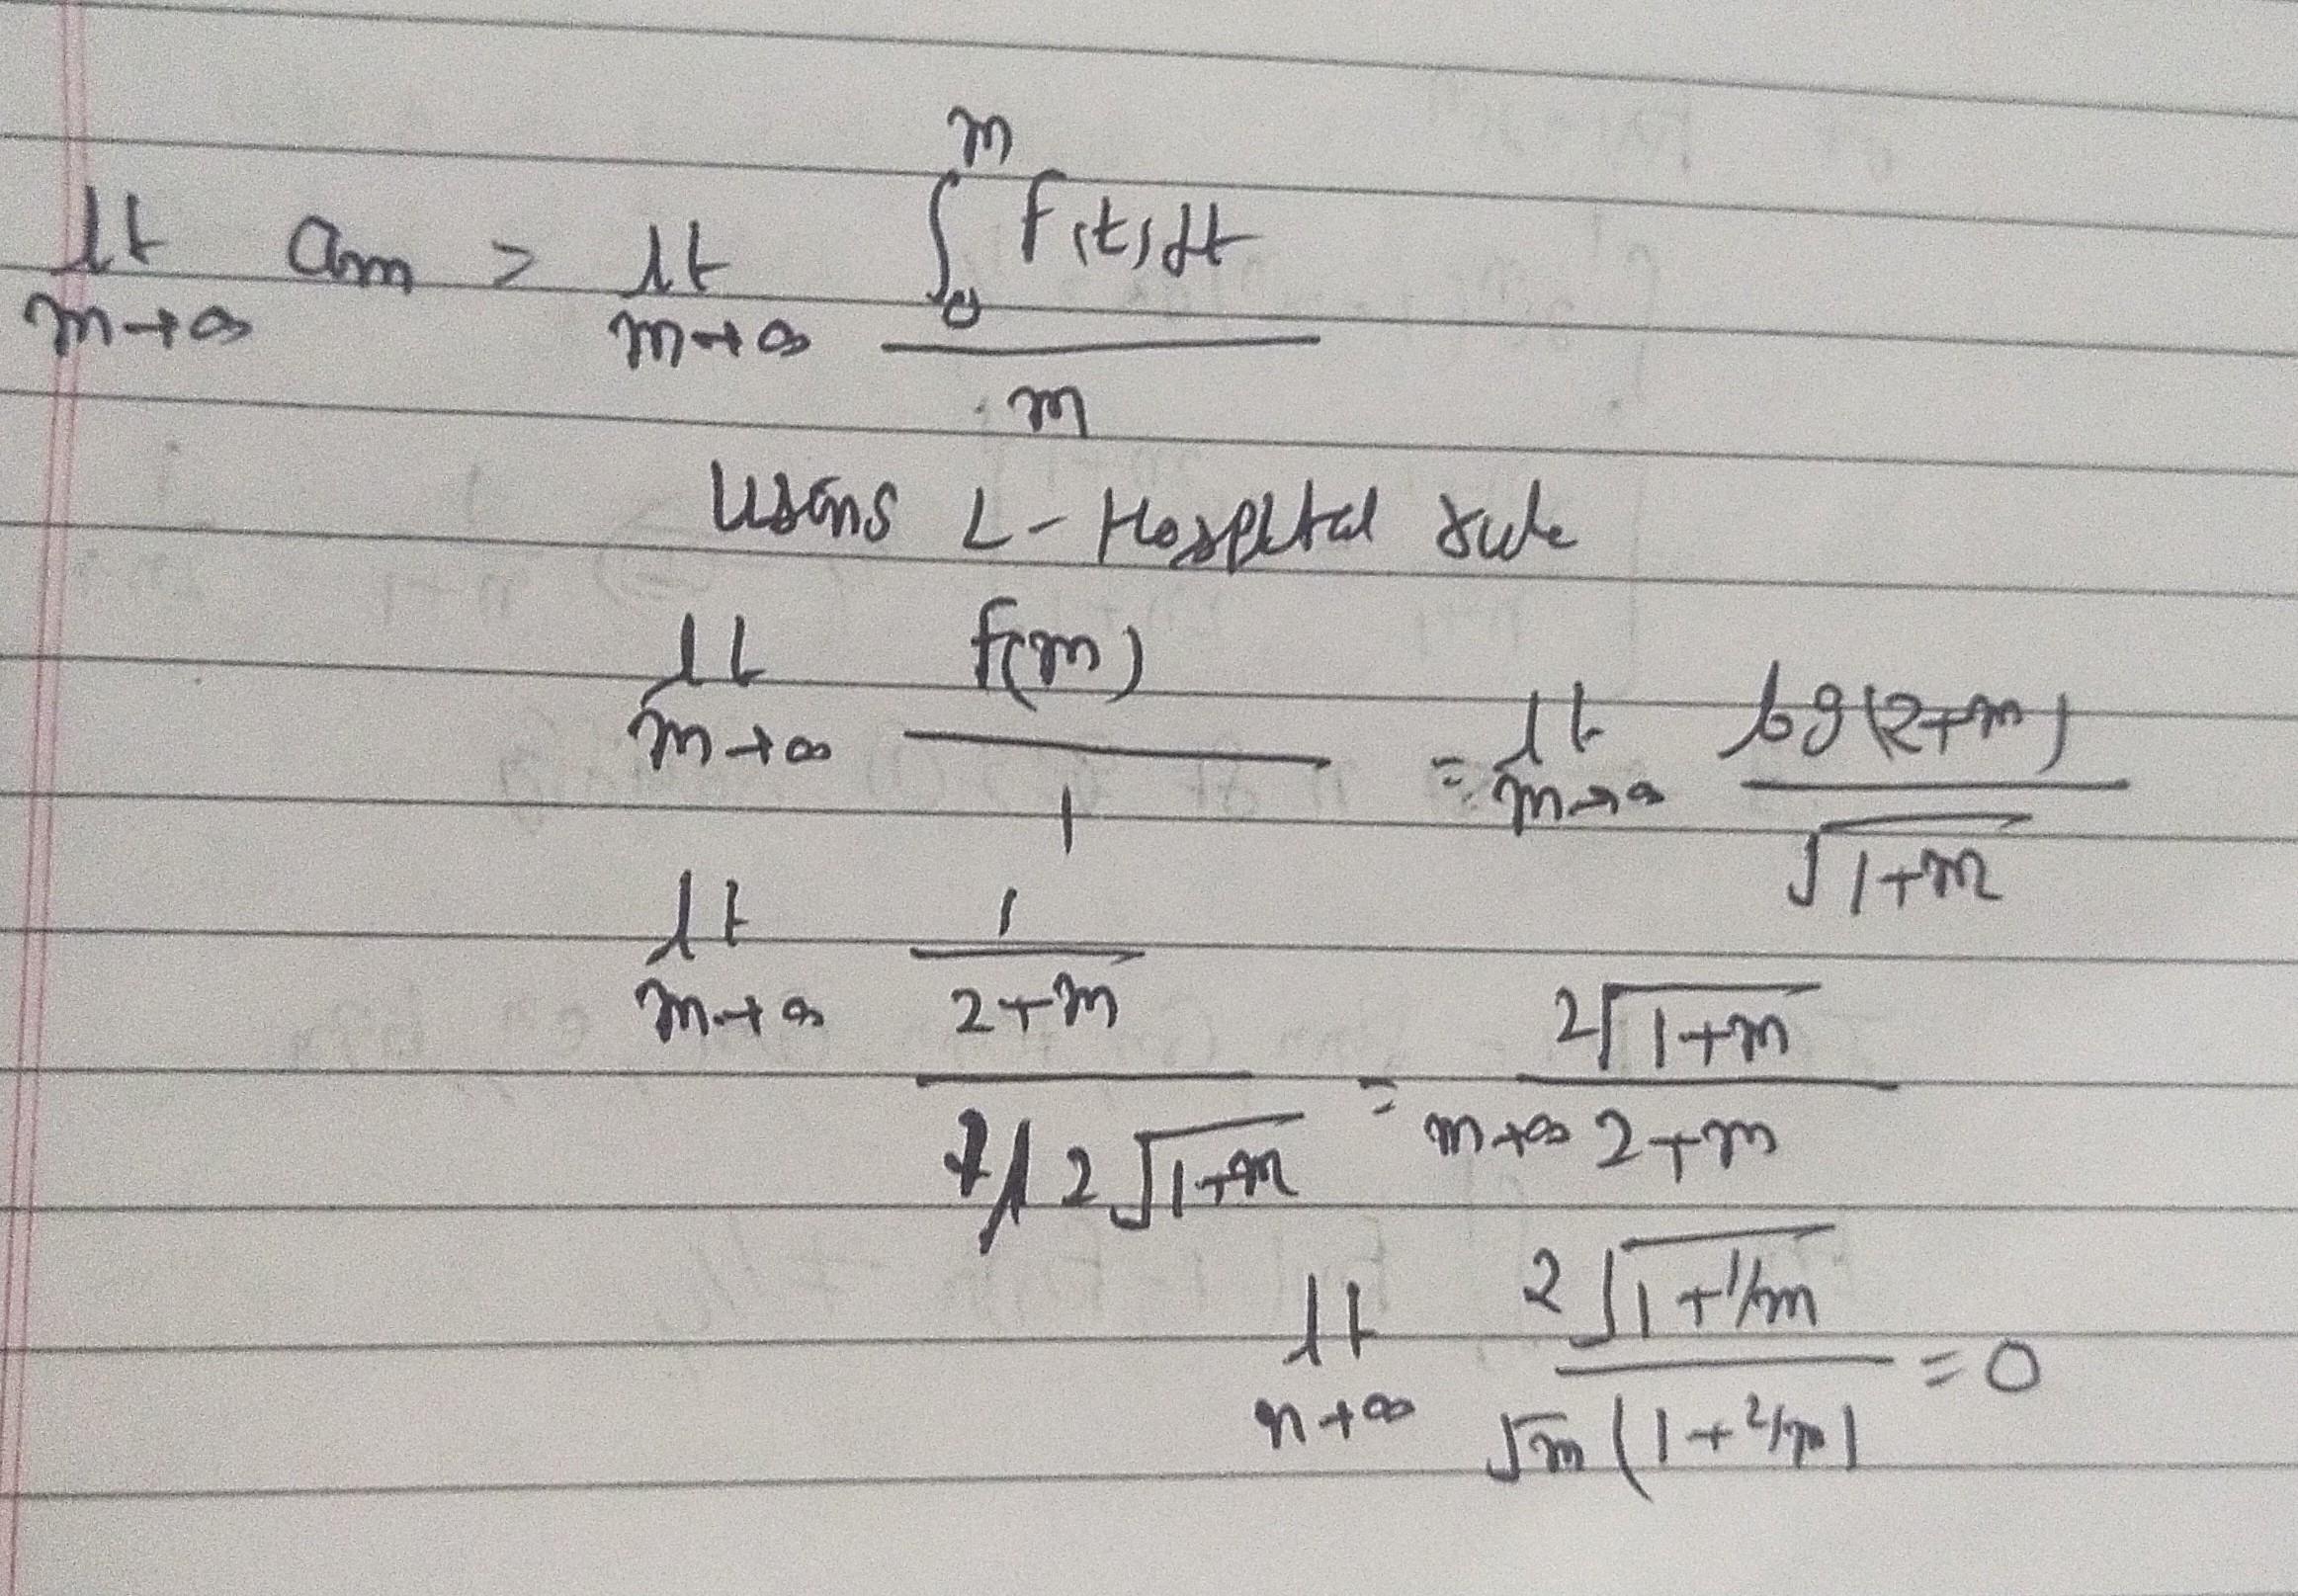 lt m→∞ am = lt m→∞ ∫₀^m f(t)dt / m
Using L-Hospital rule
lt m→∞ f(m) / 1 = lt m→∞ log(2+m) / √(1+m)
lt m→∞ (1 / (2+m)) / (1/2√(1+m)) = m→∞ 2√(1+m) / (2+m)
lt n→∞ 2√(1+1/m) / (√m (1+2/m)) = 0